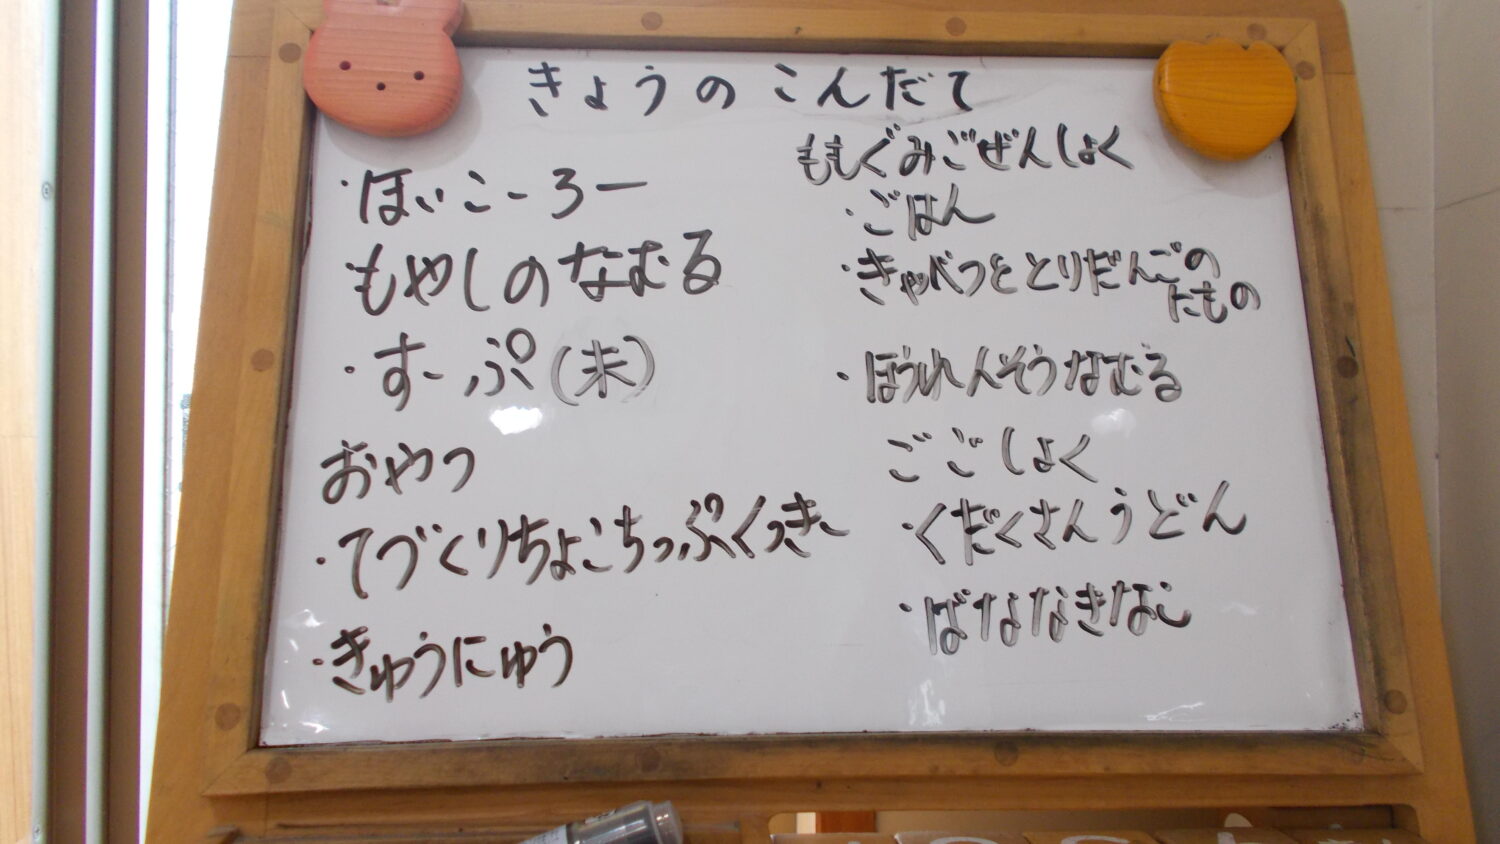 きょうのこんだて
・ほいこーろー
・もやしのなむる
・すーぷ(末)
おやつ
・てづくりちょこちっぷくっきー
・きゅうにゅう
ももぐみごぜんしょく
・ごはん
・きゃべつととりだんごの
にもの
・ほうれんそうなむる
ごごしょく
・くだくさんうどん
・ばななきなこ